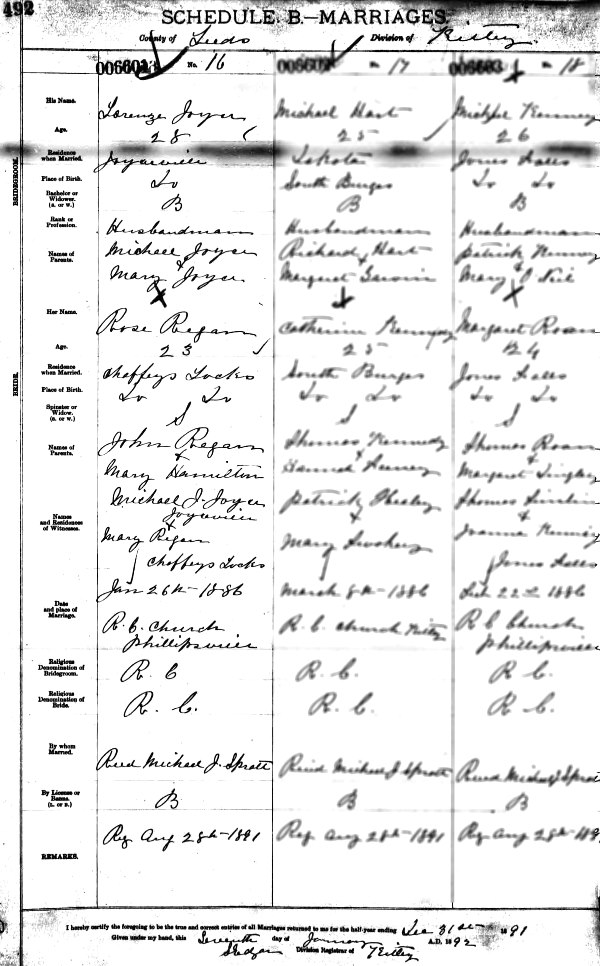 492
SCHEDULE B.—MARRIAGES.
County of Leeds Division of Kitley
No. 16 " 17 " 18
His Name. Lorenzo Joyce Michael Hart Michael Kenney
Age. 28 25 26
Residence when Married. Joyceville Lakota Jones Falls
Place of Birth. Do South Burgess Do Do
Bachelor or Widower. (B. or W.) B B B
Rank or Profession. Husbandman Husbandman Husbandman
BRIDEGROOM.
Names of Parents. Michael Joyce Richard Hart Patrick Kenney
& Mary Joyce & Margaret & Mary O'Neil
Her Name. Rose Regan Catherine Kennedy Margaret
Age. 23 25 24
Residence when Married. Chaffeys Locks South Burgess Jones Falls
Place of Birth. Do Do Do Do Do Do
Spinster or Widow. (S. or W.) S S S
BRIDE.
Names of Parents. John Regan Thomas Kennedy Thomas
& Mary Hamilton & Margaret
Names and Residences of Witnesses. Michael J. Joyce Patrick Thomas
Joyceville & &
& Mary Regan Mary Joanna Kenney
Chaffeys Locks Jones Falls
Date and place of Marriage. Jan 26th 1886 March 8th-1886 22 1886
R. C. Church R. C. Church Kitley R C Church
Phillipsville Phillipsville
Religious Denomination of Bridegroom. R. C R. C. R C.
Religious Denomination of Bride. R. C. R. C. R C.
By whom Married. Revd Michael J. Spratt Revd Michael J Spratt Revd Michael J Spratt
By License or Banns. (L. or B.) B B B
REMARKS. Reg Aug 28th-1891 Reg Aug 28th-1891 Reg Aug 28th
I hereby certify the foregoing to be the true and correct entries of all Marriages returned to me for the half-year ending Dec 31st 1891
Given under my hand, this Seventh day of January A.D. 1892
Division Registrar of Kitley